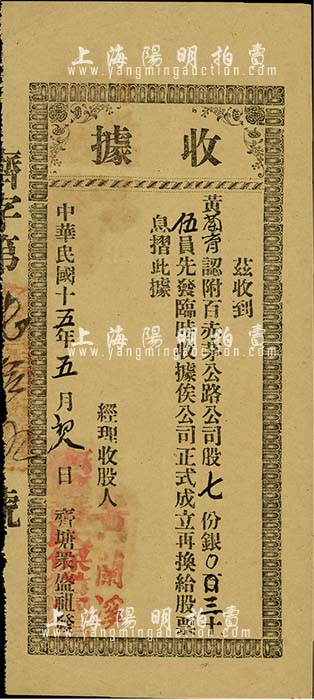 上海陽明拍賣
www.yangmingauction.com
收據
茲收到
黃蘭齋認附百赤茅公路公司股七份銀〇百三十
伍員先發臨時收據俟公司正式成立再換給股票
息摺此據
經理收股人
中華民國十五年五月 日 齊塘眾盛祖發
齊字第 號
上海陽明拍賣
www.yangmingauction.com
上海陽明拍賣
www.yangmingauction.com